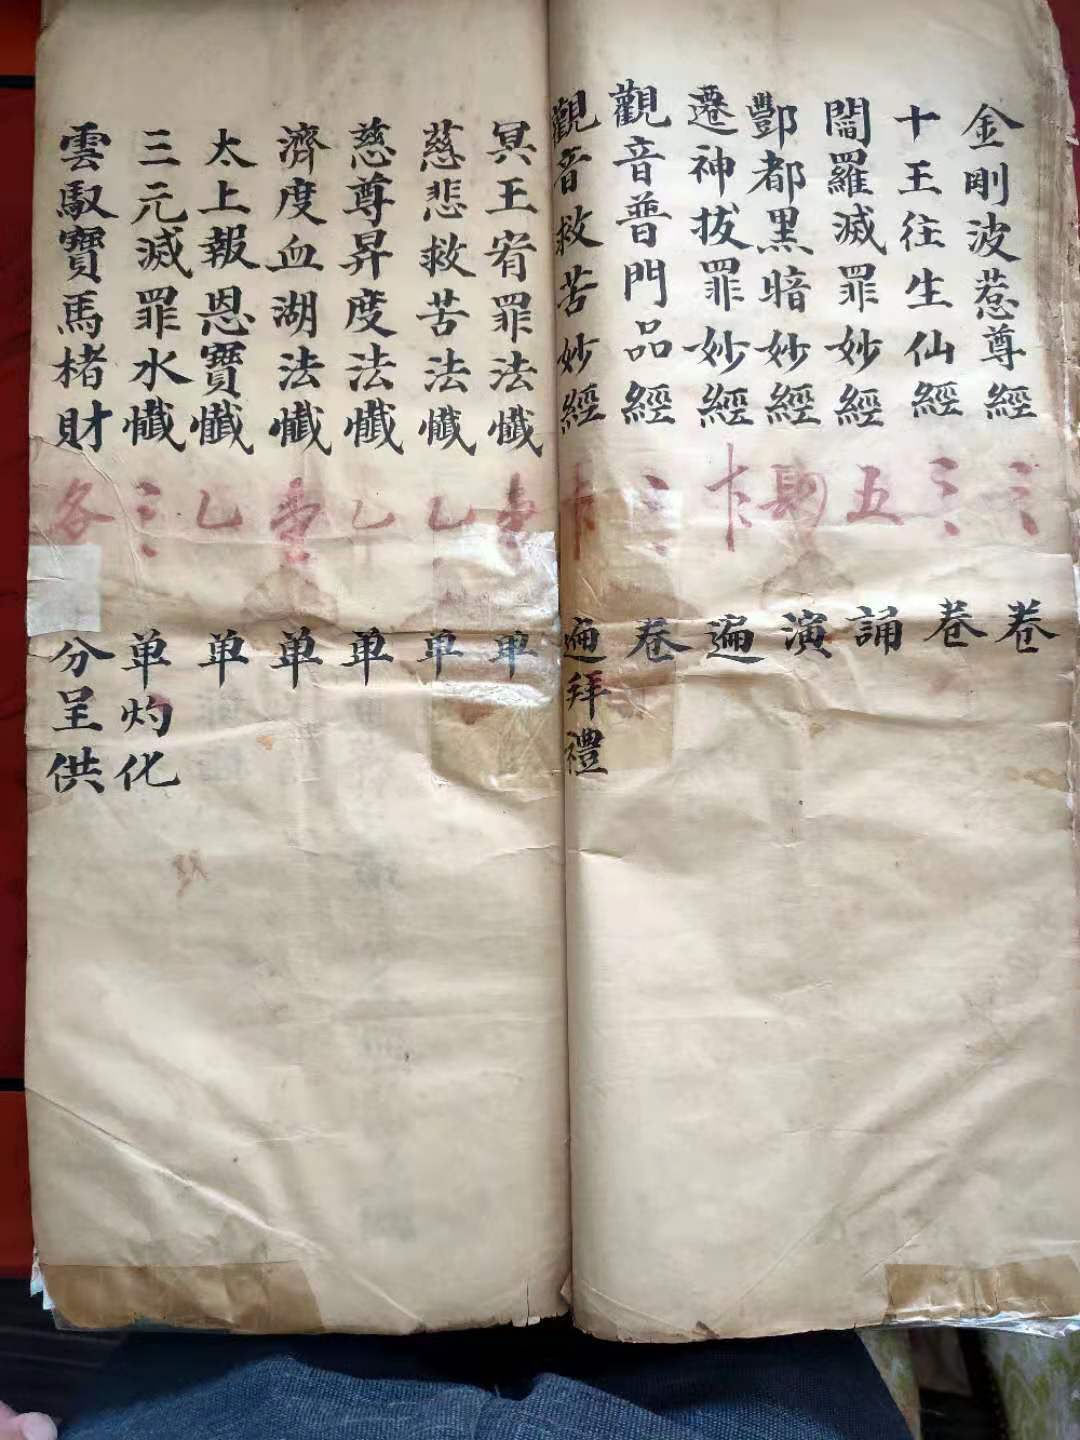 金剛波惹尊經三三卷
十王往生仙經三三卷
閻羅滅罪妙經五誦
酆都黑暗妙經演
遷神拔罪妙經卞遍
觀音普門品經三卷
觀音救苦妙經卞遍拜禮
冥王宥罪法懺壹单
慈悲救苦法懺乙单
慈尊昇度法懺乙单
濟度血湖法懺壹单
太上報恩寶懺乙单
三元滅罪水懺三单灼化
雲馭寶馬楮財各分呈供